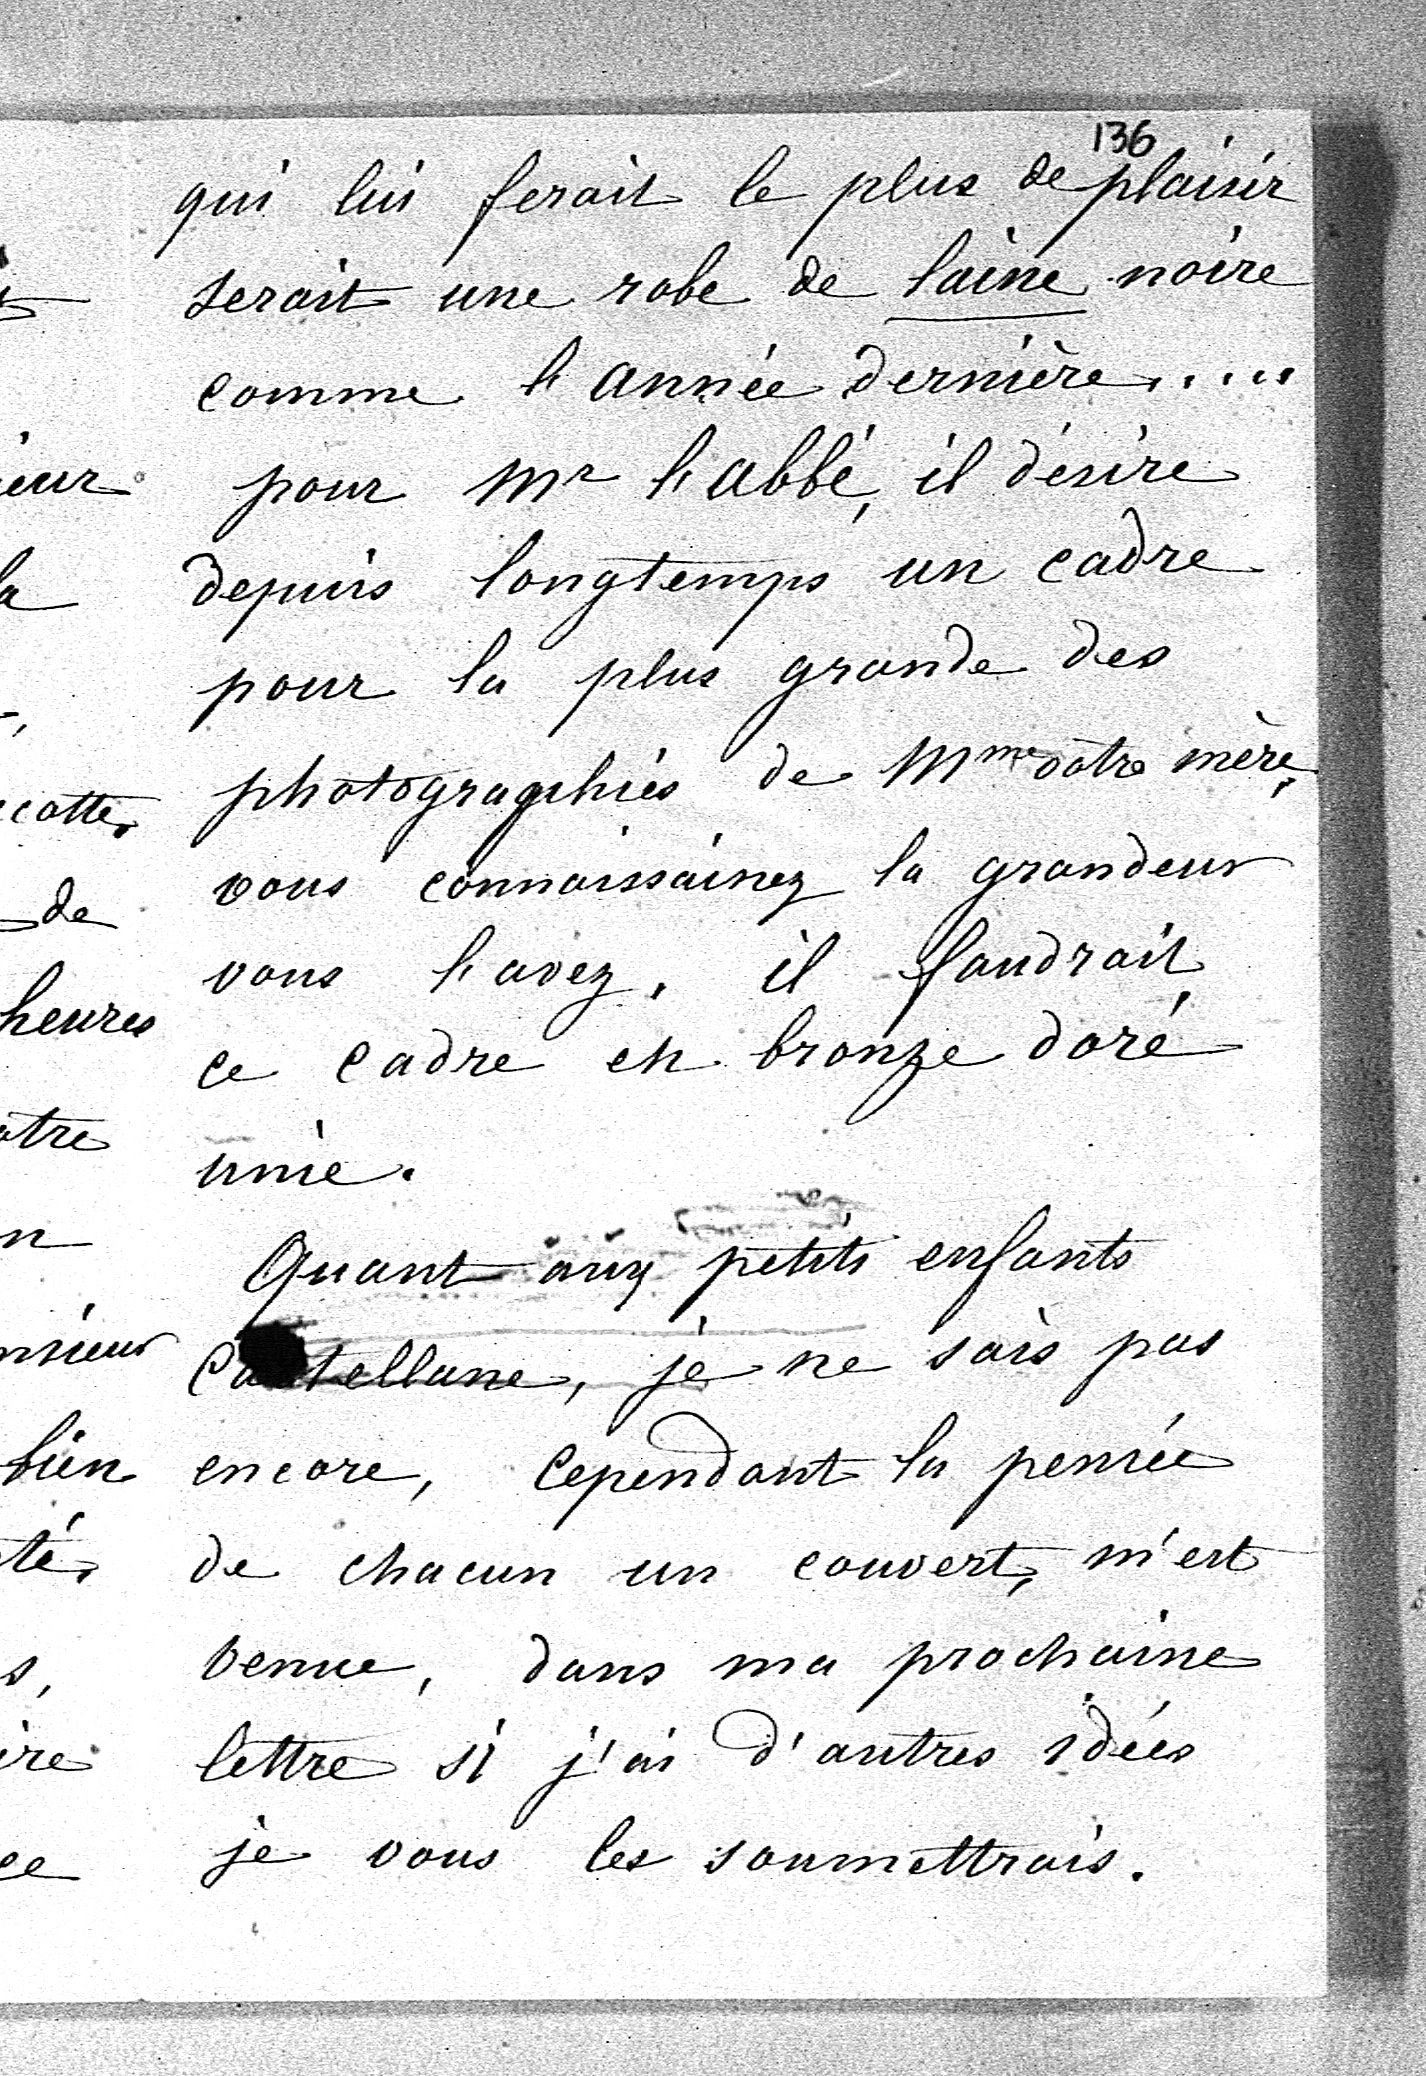 136
qui lui ferait le plus de plaisir
serait une robe de laine noire
comme l'année dernière.....
pour Mr l'abbé, il désire
depuis longtemps un cadre
pour la plus grande des
photographies de Mme votre mère,
vous connaissainez la grandeur
vous l'avez, il faudrait
ce cadre en bronze doré
unie.
Quant aux petits enfants
Castellane, je ne sais pas
encore, cependant la pensée
de chacun un couvert, m'est
venue, dans ma prochaine
lettre si j'ai d'autres idées
je vous les soumettrais.
ieur
la
cotte,
de
heures
otre
n
nsieur
bien
té,
s,
ire
ce